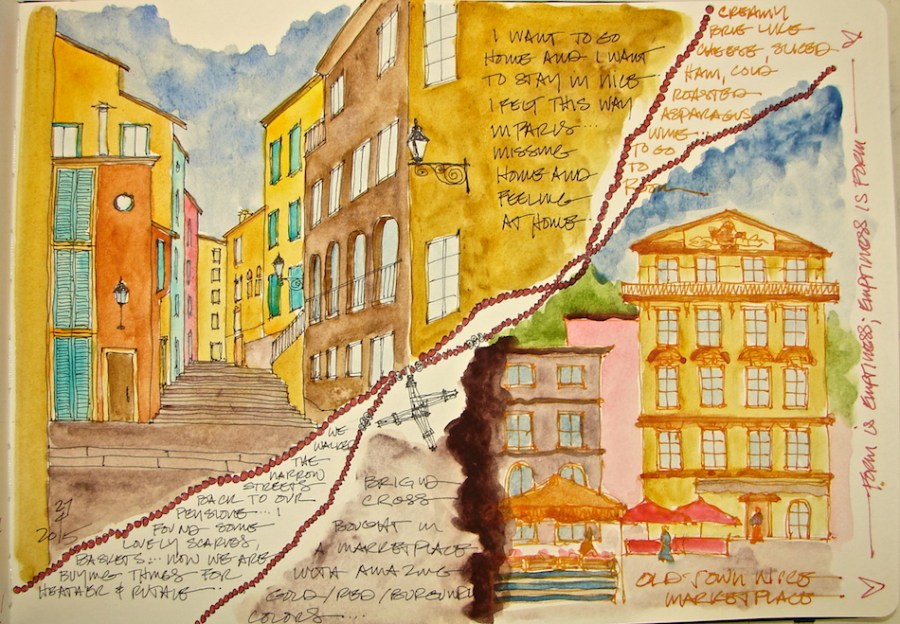 I WANT TO GO
HOME AND I WANT
TO STAY IN NICE
I FELT THIS WAY
IN PARIS...
MISSING
HOME AND
FEELING
AT HOME.
CREAMY
BRIE LIKE
CHEESE, SLICED
HAM, COLD
ROASTED
ASPARAGUS,
WINE...
TO GO
TO
ROOM
FORM IS EMPTINESS, EMPTINESS IS FORM
WE
WALKED
THE
NARROW
STREETS
BACK TO OUR
PENSIONE...!
FOUND SOME
LOVELY SCARVES,
BASKETS... NOW WE ARE
BUYING THINGS FOR
HEATHER &
2015
BRIGID
CROSS
BOUGHT IN
A MARKETPLACE
WITH AMAZING
GOLD/RED/BURGUNDY
COLORS...
OLD TOWN NICE
MARKETPLACE